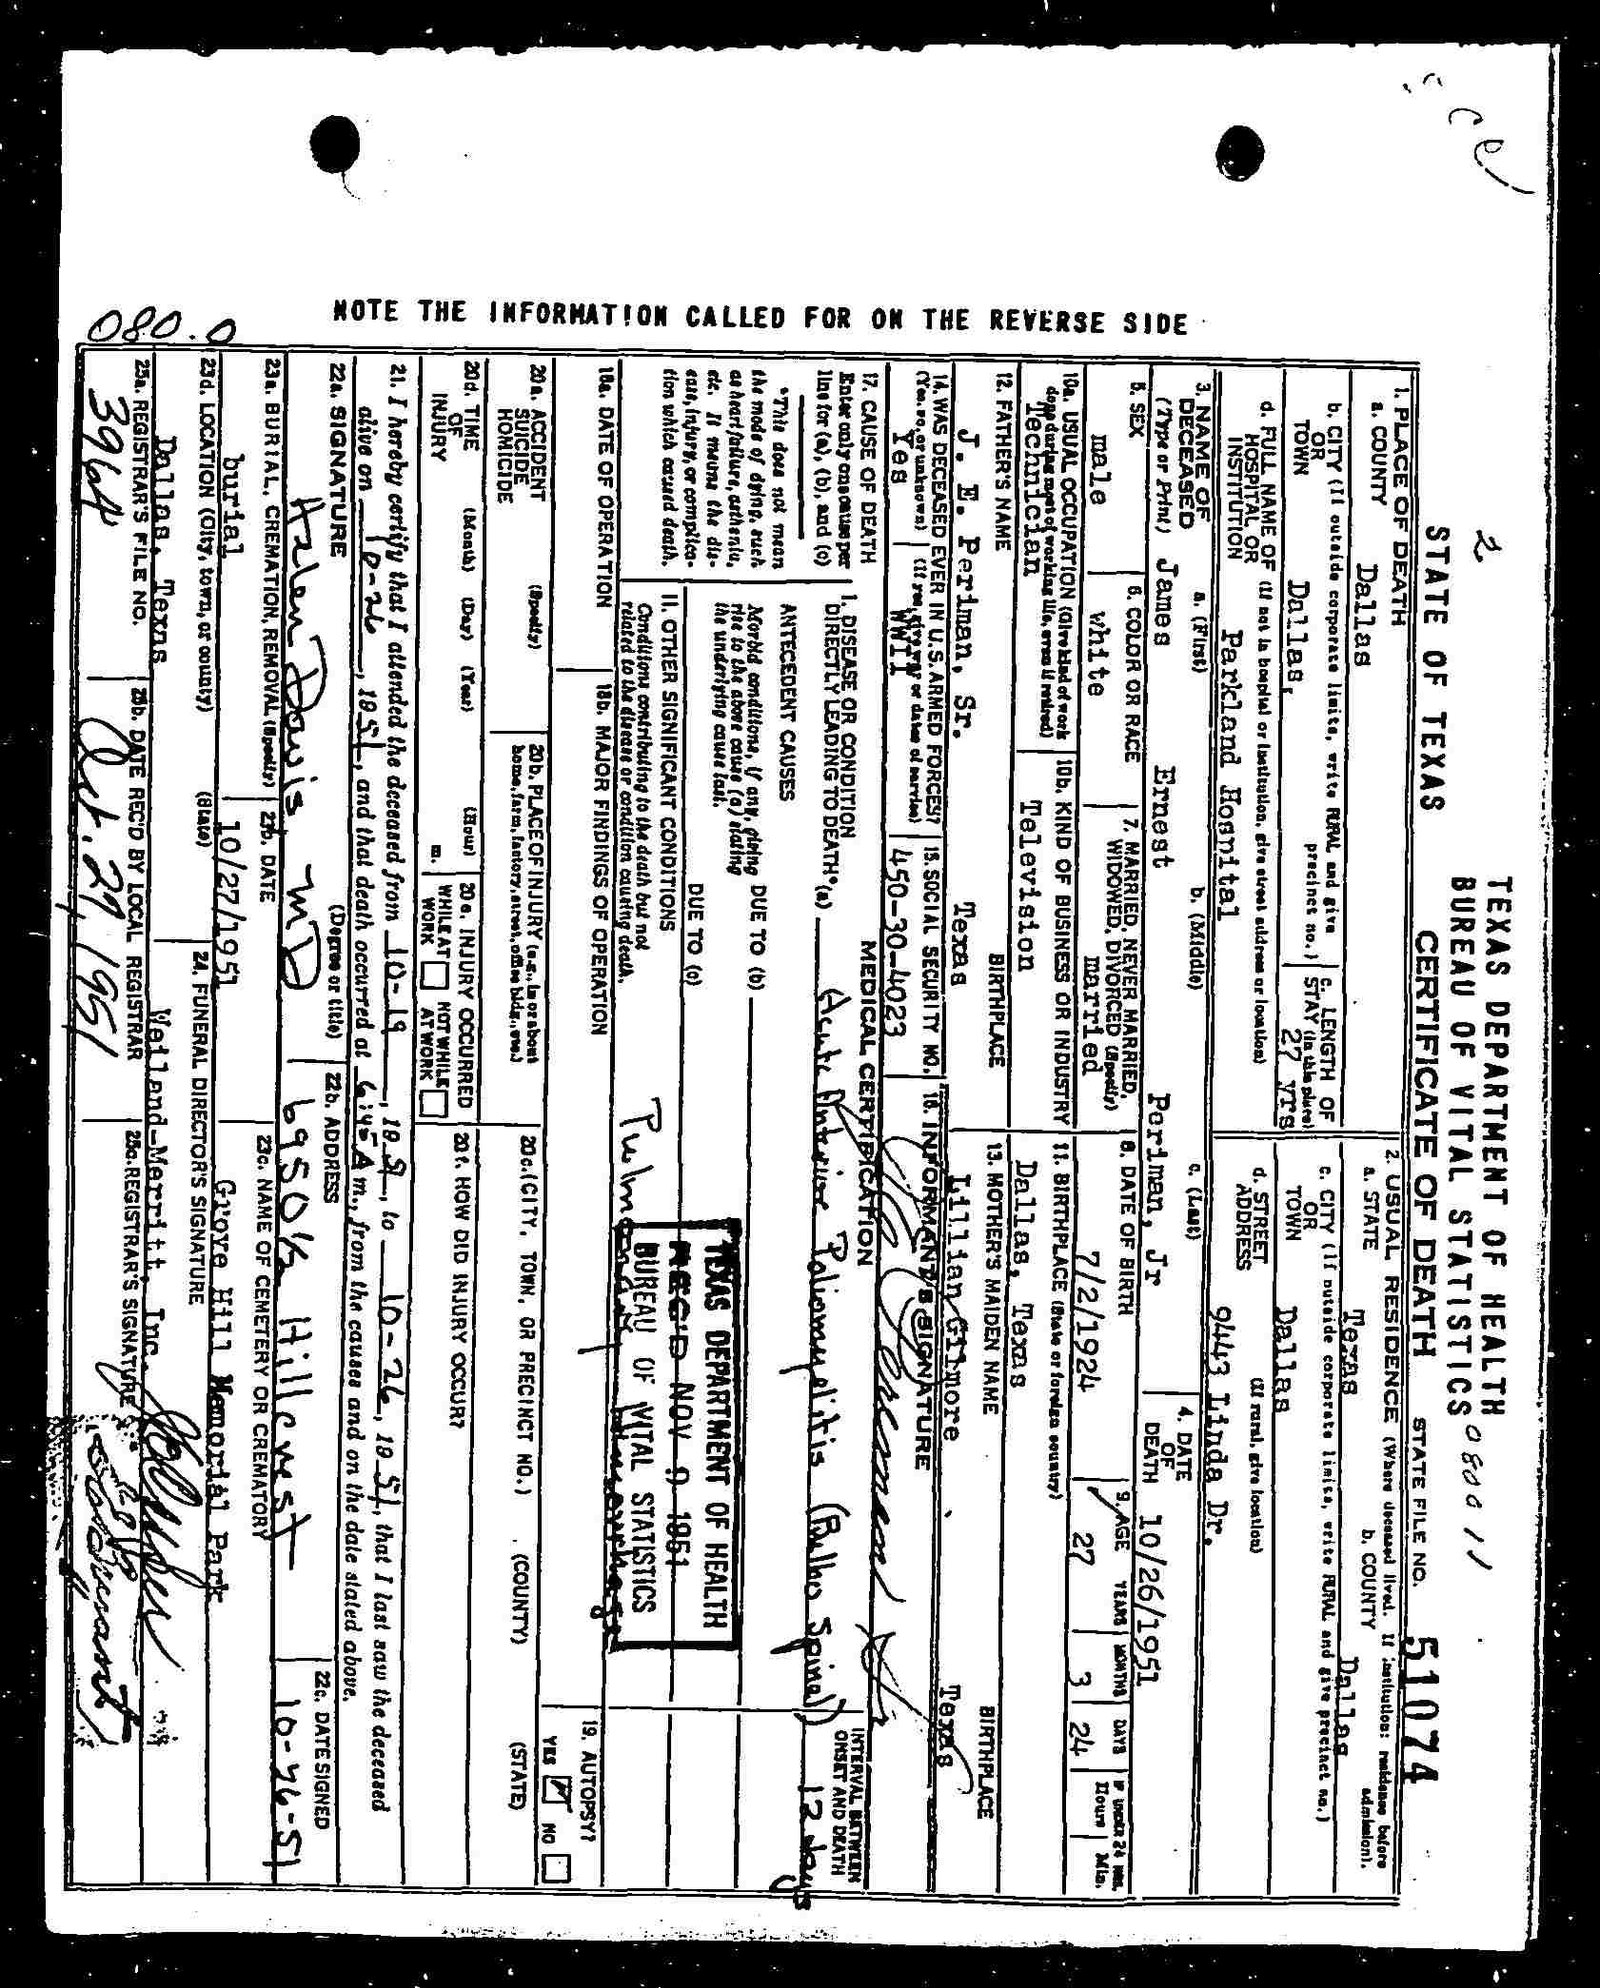 TEXAS DEPARTMENT OF HEALTH
BUREAU OF VITAL STATISTICS 080011
2
STATE OF TEXAS CERTIFICATE OF DEATH STATE FILE NO. 51074
NOTE THE INFORMATION CALLED FOR ON THE REVERSE SIDE
1. PLACE OF DEATH
a. COUNTY Dallas
2. USUAL RESIDENCE (Where deceased lived. If institution: residence before admission).
a. STATE Texas b. COUNTY Dallas
b. CITY (If outside corporate limits, write RURAL and give precinct no.)
OR
TOWN Dallas,
c. LENGTH OF
STAY (in this place)
27 yrs
c. CITY (If outside corporate limits, write RURAL and give precinct no.)
OR
TOWN Dallas
d. FULL NAME OF (If not in hospital or institution, give street address or location)
HOSPITAL OR
INSTITUTION Parkland Hospital
d. STREET (If rural, give location)
ADDRESS 9443 Linda Dr.
3. NAME OF DECEASED
(Type or Print)
a. (First) b. (Middle) c. (Last)
James Ernest Periman, Jr
4. DATE
OF
DEATH 10/26/1951
5. SEX
male
6. COLOR OR RACE
white
7. MARRIED, NEVER MARRIED,
WIDOWED, DIVORCED (Specify)
married
8. DATE OF BIRTH
7/2/1924
9. AGE YEARS MONTHS DAYS IF UNDER 24 HRS.
Hours Min.
27 3 24
10a. USUAL OCCUPATION (Give kind of work
done during most of working life, even if retired)
Technician
10b. KIND OF BUSINESS OR INDUSTRY
Television
11. BIRTHPLACE (State or foreign country)
Dallas, Texas
12. FATHER'S NAME BIRTHPLACE
J. E. Periman, Sr. Texas
13. MOTHER'S MAIDEN NAME BIRTHPLACE
Lillian Gilmore Texas
14. WAS DECEASED EVER IN U.S. ARMED FORCES?
(Yes, no, or unknown) (If yes, give war or dates of service)
Yes WWII
15. SOCIAL SECURITY NO.
450-30-4023
16. INFORMANT'S SIGNATURE
17. CAUSE OF DEATH
Enter only one cause per
line for (a), (b), and (c)
*This does not mean
the mode of dying, such
as heart failure, asthenia,
etc. It means the dis-
ease, injury, or complica-
tion which caused death.
MEDICAL CERTIFICATION
INTERVAL BETWEEN
ONSET AND DEATH
I. DISEASE OR CONDITION
DIRECTLY LEADING TO DEATH*(a) Acute Anterior Poliomyelitis (Bulbo Spinal) 12 days
ANTECEDENT CAUSES
Morbid conditions, if any, giving
rise to the above cause (a) stating
the underlying cause last.
DUE TO (b)
DUE TO (c)
II. OTHER SIGNIFICANT CONDITIONS
Conditions contributing to the death but not
related to the disease or condition causing death.
Pulmonary
TEXAS DEPARTMENT OF HEALTH
REC'D NOV 9 1951
BUREAU OF VITAL STATISTICS
18a. DATE OF OPERATION
18b. MAJOR FINDINGS OF OPERATION
19. AUTOPSY?
YES NO
20a. ACCIDENT (Specify)
SUICIDE
HOMICIDE
20b. PLACE OF INJURY (e.g., in or about
home, farm, factory, street, office bldg., etc.)
20c. (CITY, TOWN, OR PRECINCT NO.) (COUNTY) (STATE)
20d. TIME (Month) (Day) (Year) (Hour)
OF
INJURY m.
20e. INJURY OCCURRED
WHILE AT WORK NOT WHILE AT WORK
20f. HOW DID INJURY OCCUR?
21. I hereby certify that I attended the deceased from 10-19, 1951, to 10-26, 1951, that I last saw the deceased
alive on 10-26, 1951, and that death occurred at 6:45 A m., from the causes and on the date stated above.
22a. SIGNATURE (Degree or title)
Helen Davis MD
22b. ADDRESS
6950½ Hillcrest
22c. DATE SIGNED
10-26-51
23a. BURIAL, CREMATION, REMOVAL (Specify)
burial
23b. DATE
10/27/1951
23c. NAME OF CEMETERY OR CREMATORY
Grove Hill Memorial Park
23d. LOCATION (City, town, or county) (State)
Dallas, Texas
24. FUNERAL DIRECTOR'S SIGNATURE
Weiland-Merritt, Inc.
25a. REGISTRAR'S FILE NO.
3964
25b. DATE REC'D BY LOCAL REGISTRAR
Oct. 29, 1951
25c. REGISTRAR'S SIGNATURE
080.0